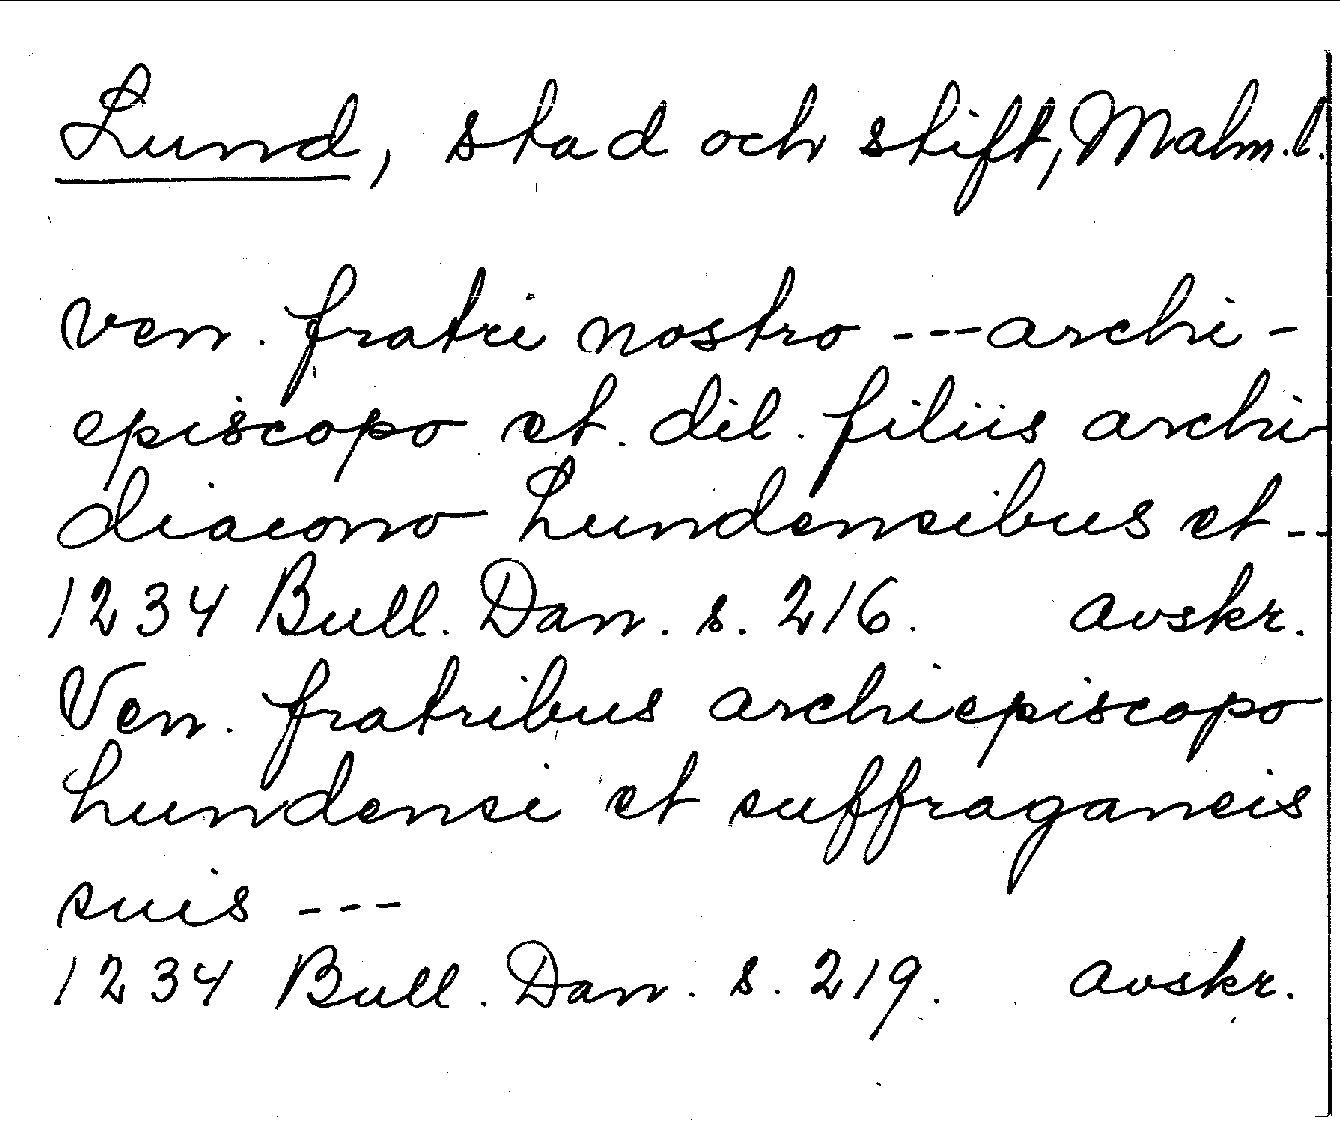 Lund, stad och stift, Malm. l.
ven. fratri nostro --- archi-
episcopo et. dil. filiis archi-
diacono Lundensibus et --
1234 Bull. Dan. s. 216. avskr.
Ven. fratribus archiepiscopo
Lundensi et suffraganeis
suis ---
1234 Bull. Dan. s. 219. avskr.